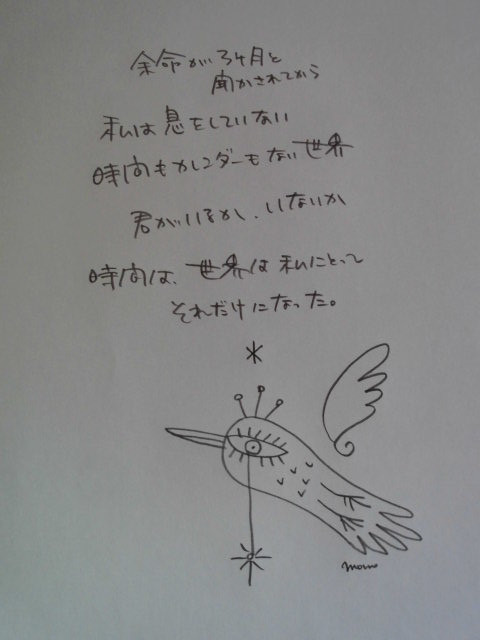 余命が3ヶ月と
聞かされてから
私は息をしていない
時間もカレンダーもない世界
君がいるか、いないか
時間は、世界は私にとって
それだけになった。
momo